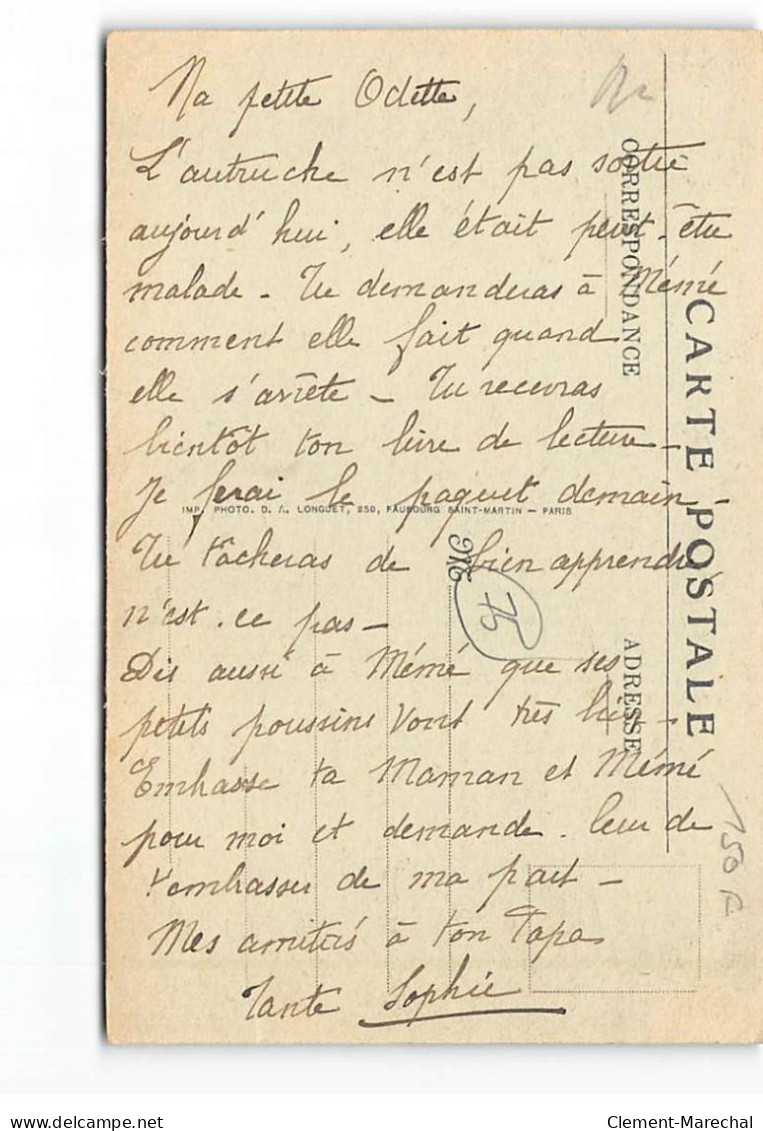 Ma petite Odette,
L'autruche n'est pas sortie
aujourd'hui, elle était peut-être
malade - Tu demanderas à Mémé
comment elle fait quand
elle s'arrête - Tu recevras
bientôt ton livre de lecture -
Je ferai le paquet demain -
IMP. PHOTO. D. A. LONGUET, 250, FAUBOURG SAINT-MARTIN — PARIS
Tu tâcheras de bien apprendre
n'est-ce pas -
Dis aussi à Mémé que ses
petits poussins vont très bien -
Embrasse ta Maman et Mémé
pour moi et demande-leur de
t'embrasser de ma part -
Mes amitiés à ton Papa
Tante Sophie
CARTE POSTALE
CORRESPONDANCE
ADRESSE
M
75
150 F
delcampe.net
Clement-Marechal